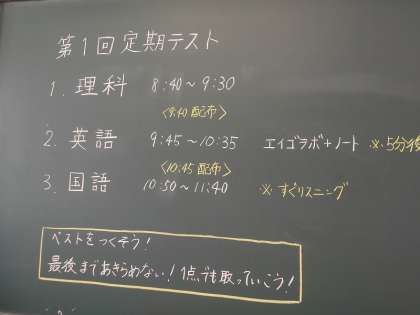 第1回定期テスト
1. 理科 8:40~9:30
<9:40 配布>
2. 英語 9:45~10:35 エイゴラボ+ノート ※5分後
<10:45 配布>
3. 国語 10:50~11:40 ※すぐリスニング
ベストをつくそう!
最後まであきらめない!1点でも取っていこう!